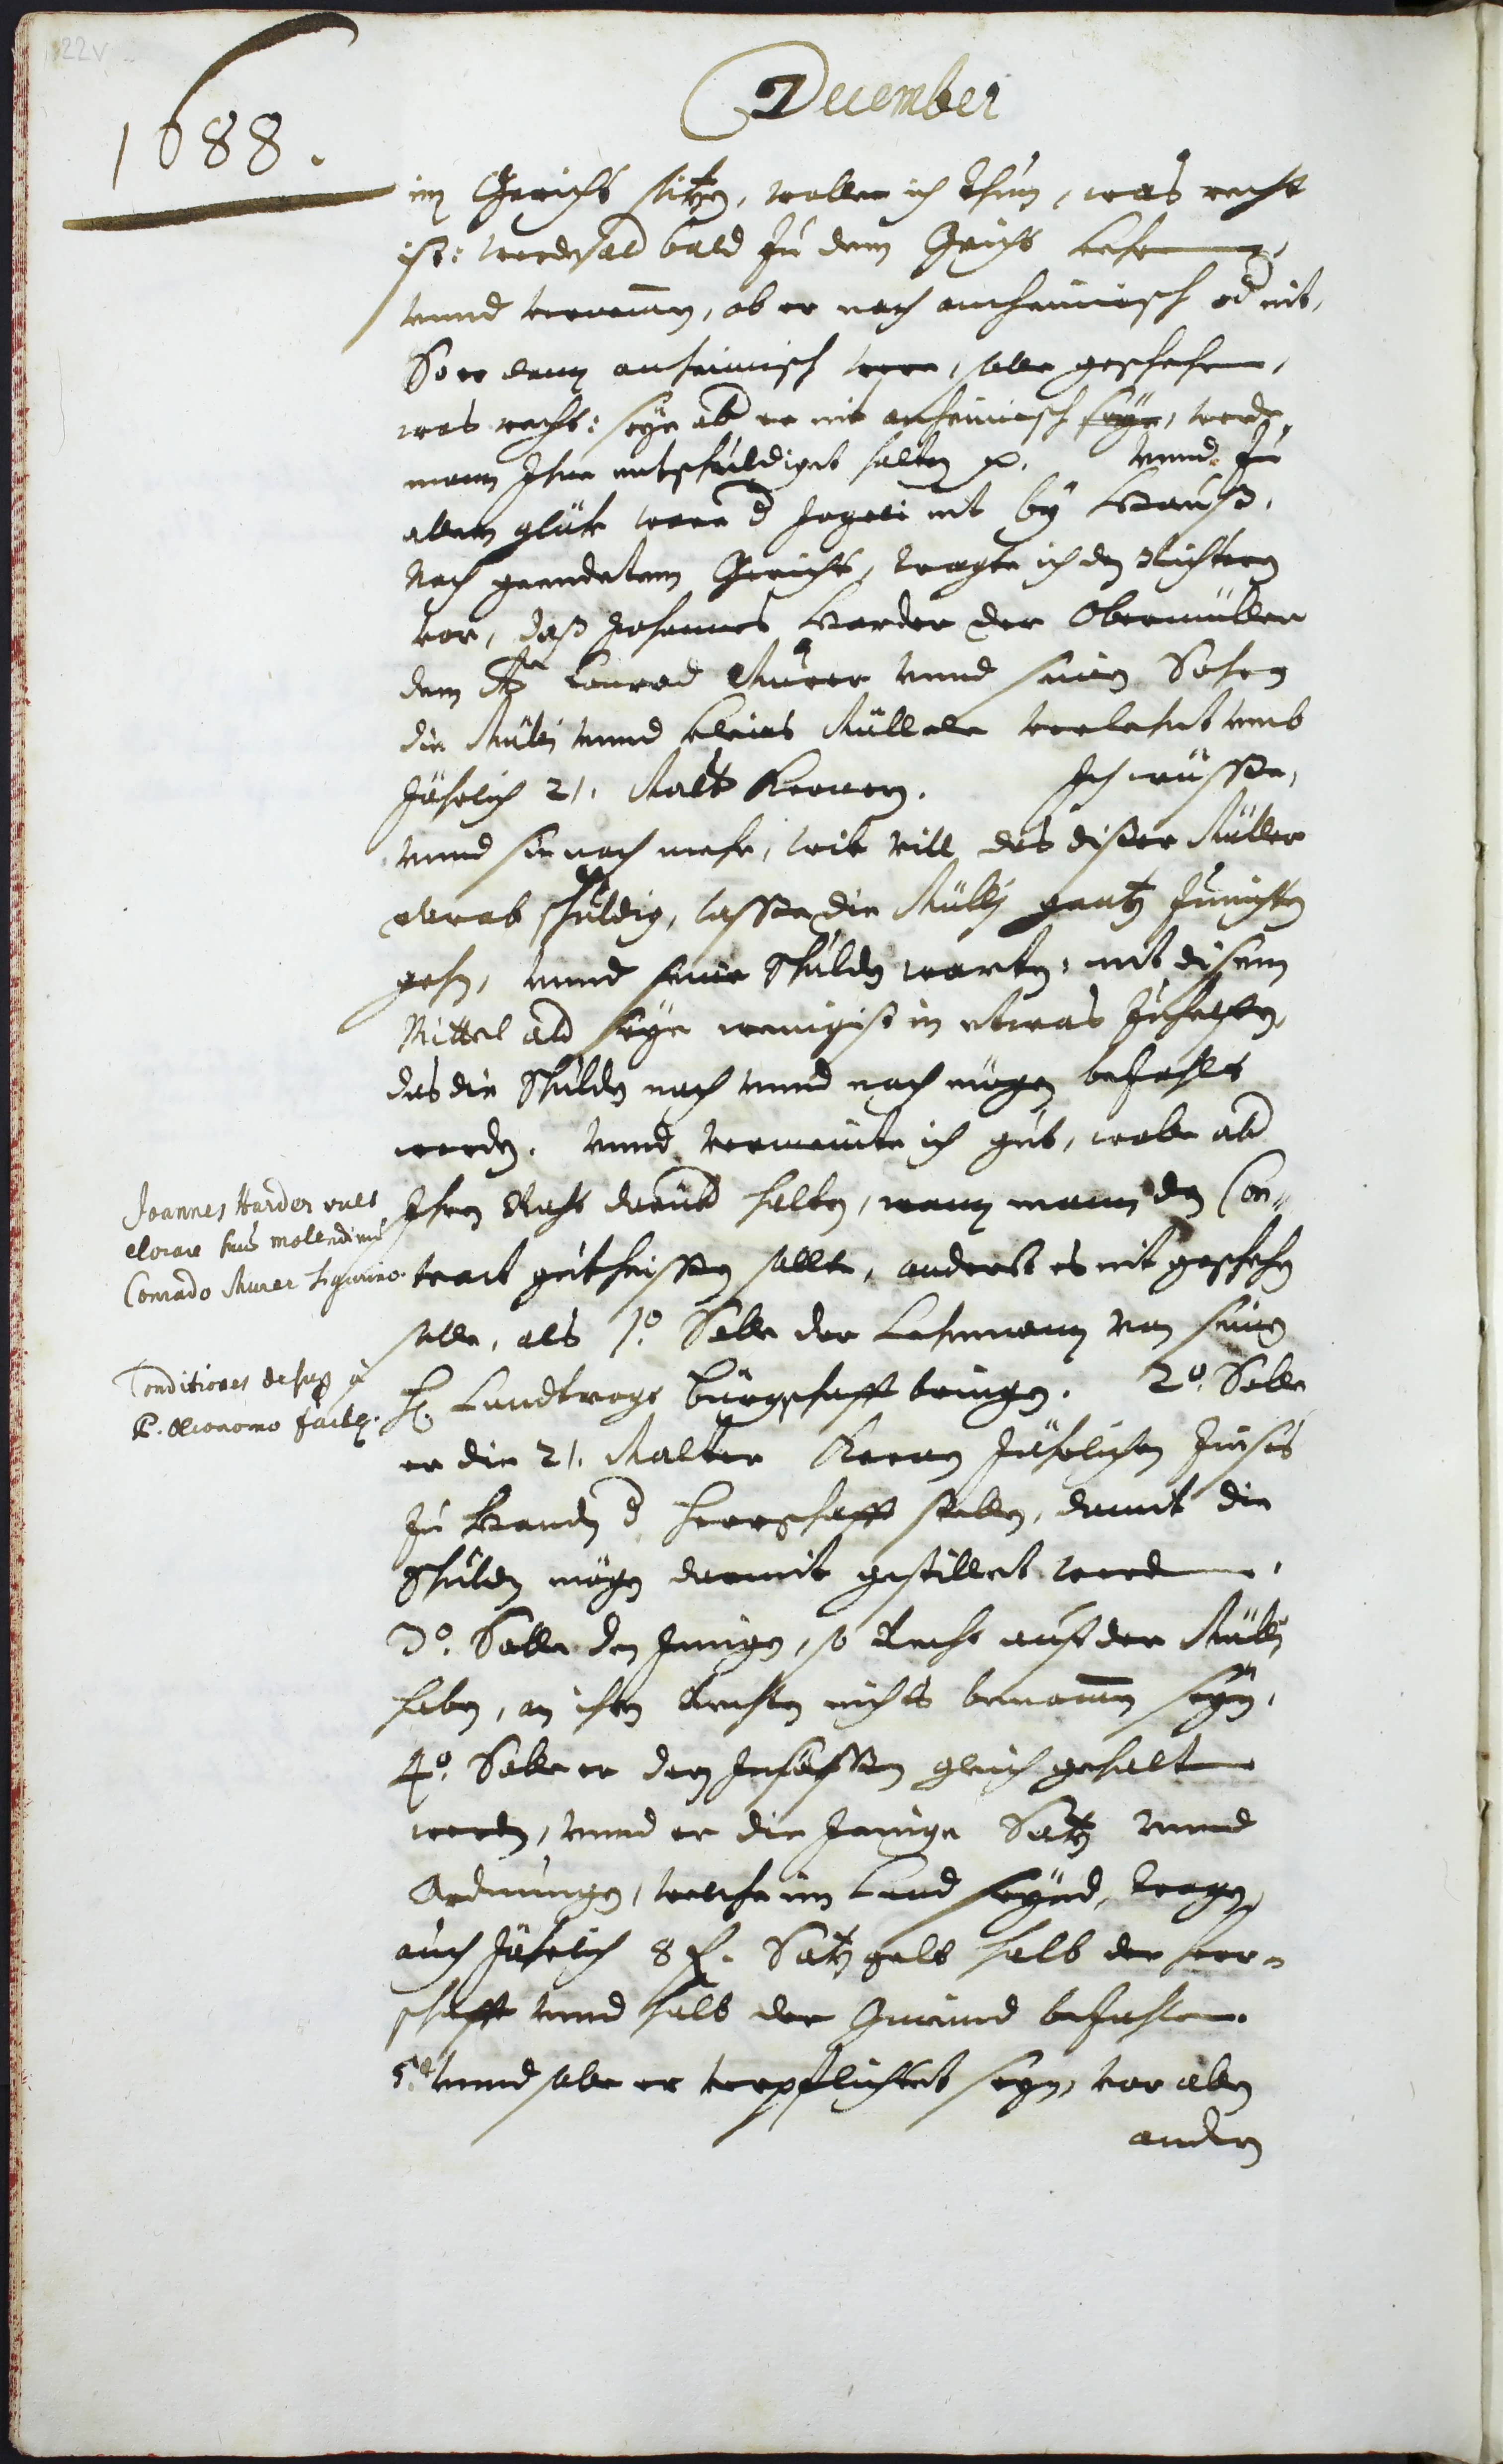 22v
December
1688.
im Gericht sitzen, wolle ich thun, was recht
ist: werde ald bald zu dem Gricht kehren,
vnnd vernemmen, ob er noch anheimisch od nit,
So er dann anheimisch were, solle geschehen,
was recht: seye ab er nit anheimisch seye, werde
mann Ihne entschuldiget halten p. Vnnd zu
allem glük ware d Jogeli nit by Hauß.
Nach geendetem Gericht, tragte ich den Richtern
vor, daß Johannes Harder der Obermüller
dem Conrad Murer vnnd seinen Sohn
die Mülli vnnd kleine Mülle verlehnt vmb
Jährlich 21. Malt Kernen. Ich wüsse,
vnnd sie noch mehr, wie vill das diser Müller
überab schuldig, lasse die Mülli gantz zunichten
gehn, vnnd seine Schulden warten: mit disem
Mittel ald seye wenigist in etwas zuhelffen,
das die Schulden nach vnnd nach mögen bezahlt
werden. Vnnd vermeinte ich gut, wolle ab
Ihren Raht darüb halten, wann mann den Con-
tract gutheissen sollte, anderst es nit geschehen
solle, als 1º. Solle der Lehenmann von seinem
H. Landtvogt Bürgschafft bringen. 2º. Solle
er die 21. Malter Kernen Jährlichen Zinses
zu Handen d Herrschafft stellen, damit die
Schulden mögen darmit gestillet werden.
3º. Solle den Jenigen, so Recht auf der Mülli
haben, an ihren Rechten nichts benommen seyn.
4º. Solle er den Insässen gleich gehalten
werden, vnnd er die Jenige Satz vnnd
Ordnungen, welche im Land seynd, tragen,
auch Jährlich 8 f. Satzgelt halb der Herr-
schafft vnnd halb der Gmeind bezahlen.
5º. Vnnd solle er verpflichtet seyn, vor allen
andern
Joannes Harder vult
elocare suu molendinu
Conrado Murer Tigurino.
Conditiones desup à
P. Oeconomo factæ.